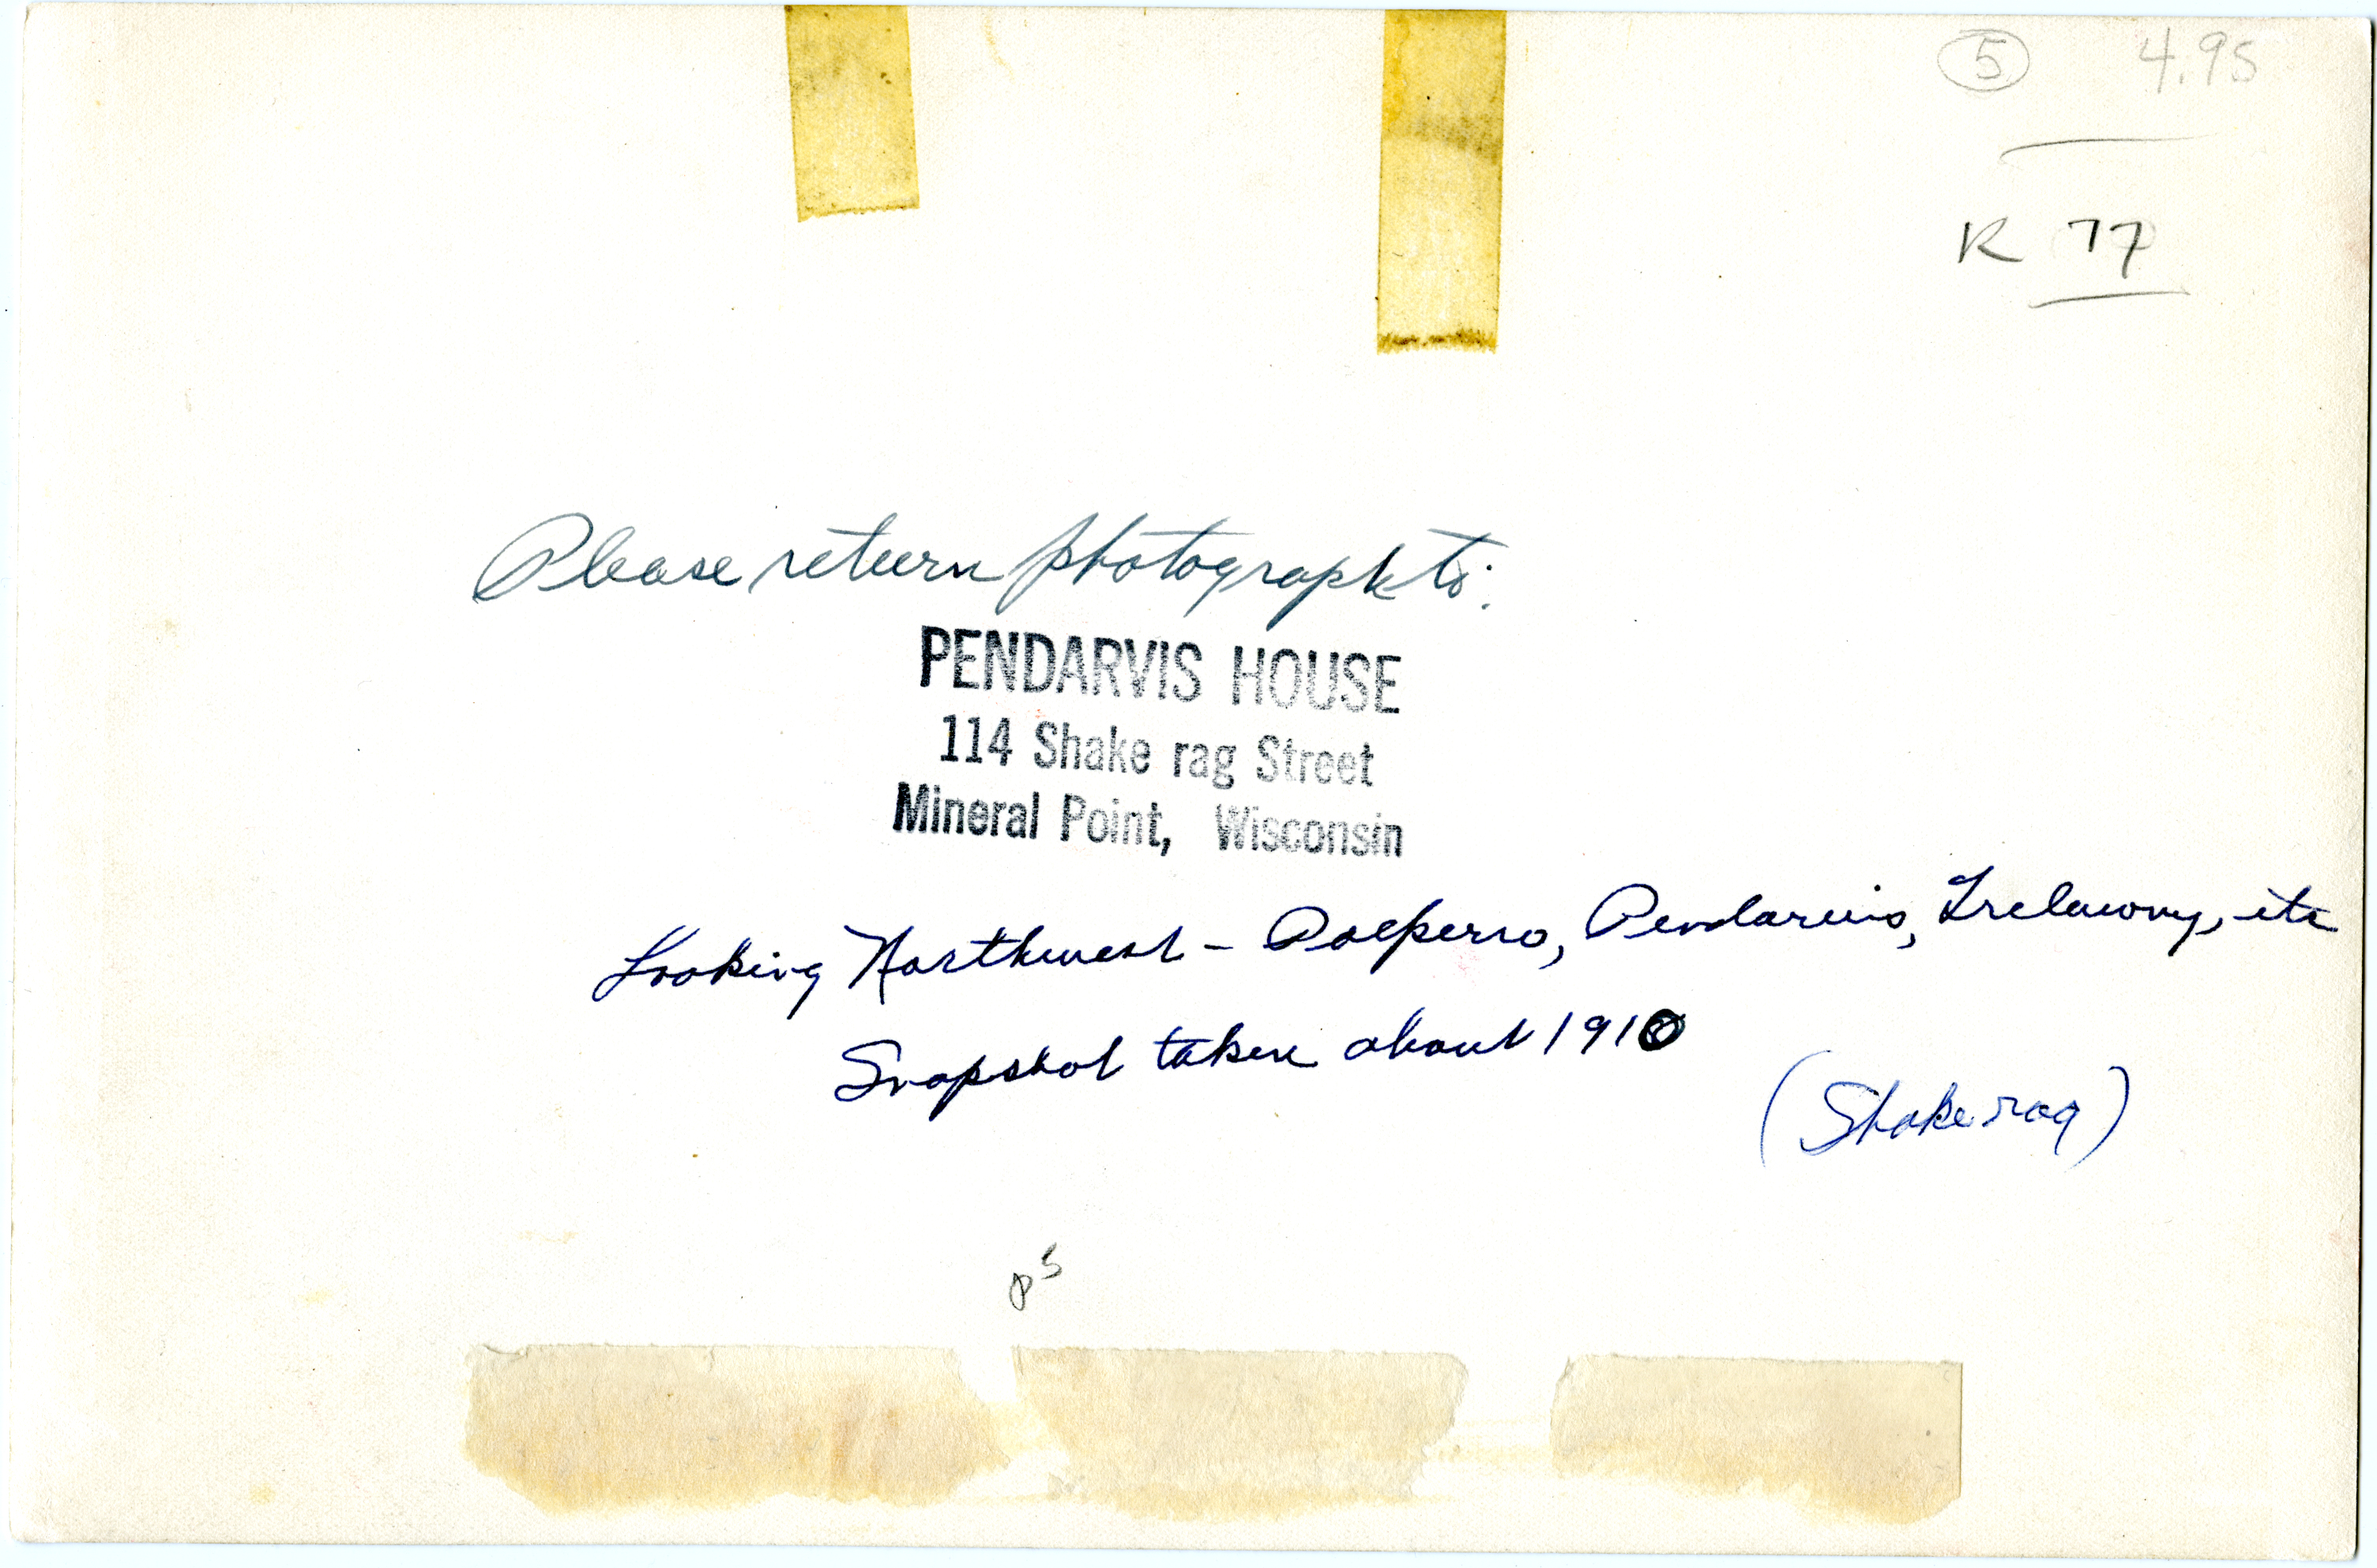 5 4.95
K 77
Please return photograph to:
PENDARVIS HOUSE
114 Shake rag Street
Mineral Point, Wisconsin
Looking Northwest - Polperro, Pendarvis, Trelawny, etc
Snapshot taken about 1910
(Shakerag)